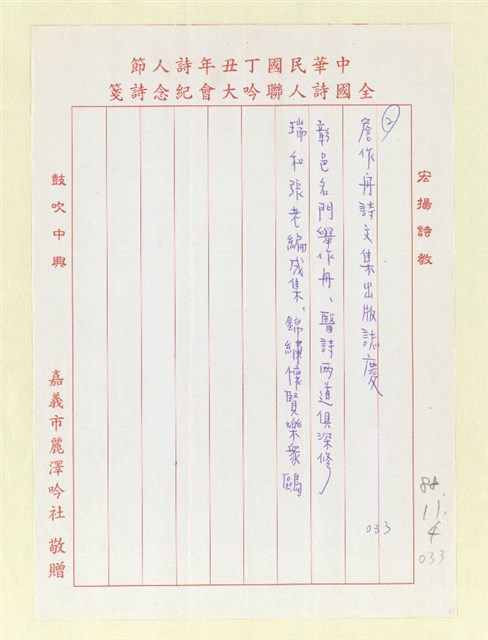 中華民國丁丑年詩人節
全國詩人聯吟大會紀念詩箋
宏揚詩教
② 詹作舟詩文集出版誌慶
彰邑名門舉作舟、醫詩兩道俱深修
瑞和張老編成集、錦繡懷賢樂眾鷗
033
88.
11.
4
033
鼓吹中興
嘉義市麗澤吟社 敬贈